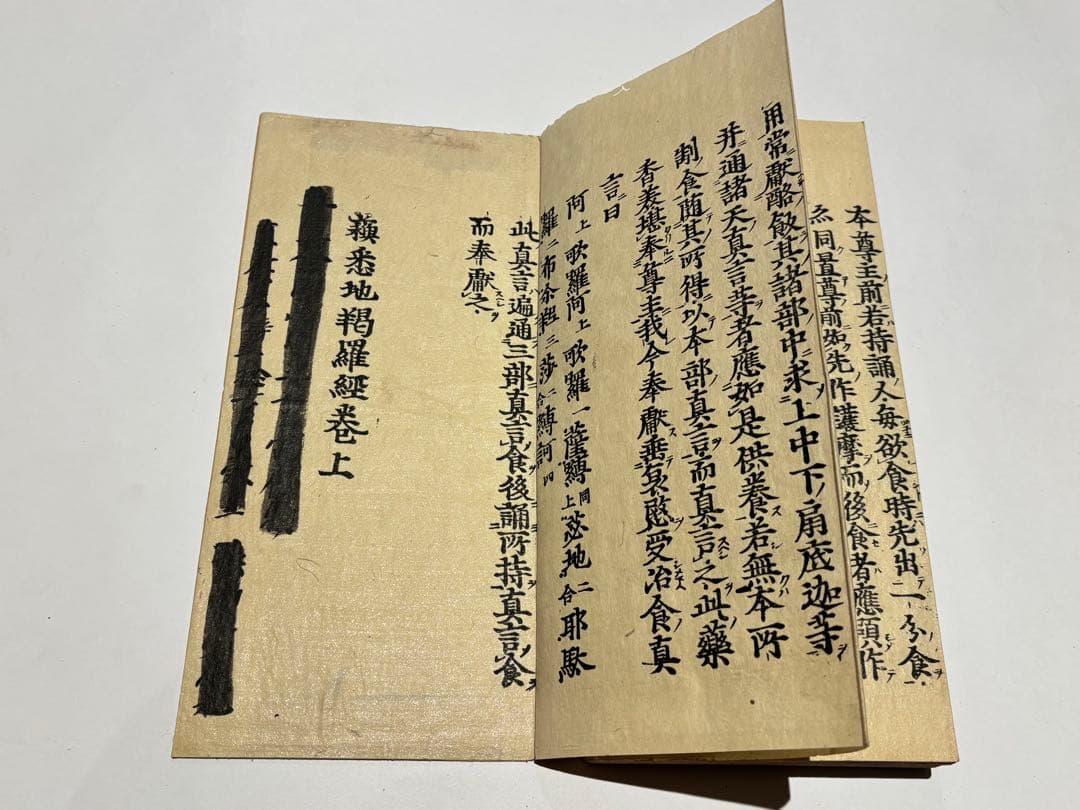 本尊主前若持誦人每欲食時先出一分食
亦同置尊前如先作護摩而後食者應預作
用常獻酪飯其諸部中求上中下扇底迦等
并通諸天真言等者應如是供養若無本所
制食随其所得以本部真言而真言之此藥
香美堪奉尊主我今奉獻垂哀愍受治食真
言曰
阿上歌羅阿上歌羅一薩縛同上苾地二合耶馱
羅二布三莎二合縛訶四
此真言遍通三部真言食後誦所持真言食
而奉獻之
蘓悉地羯羅經卷上